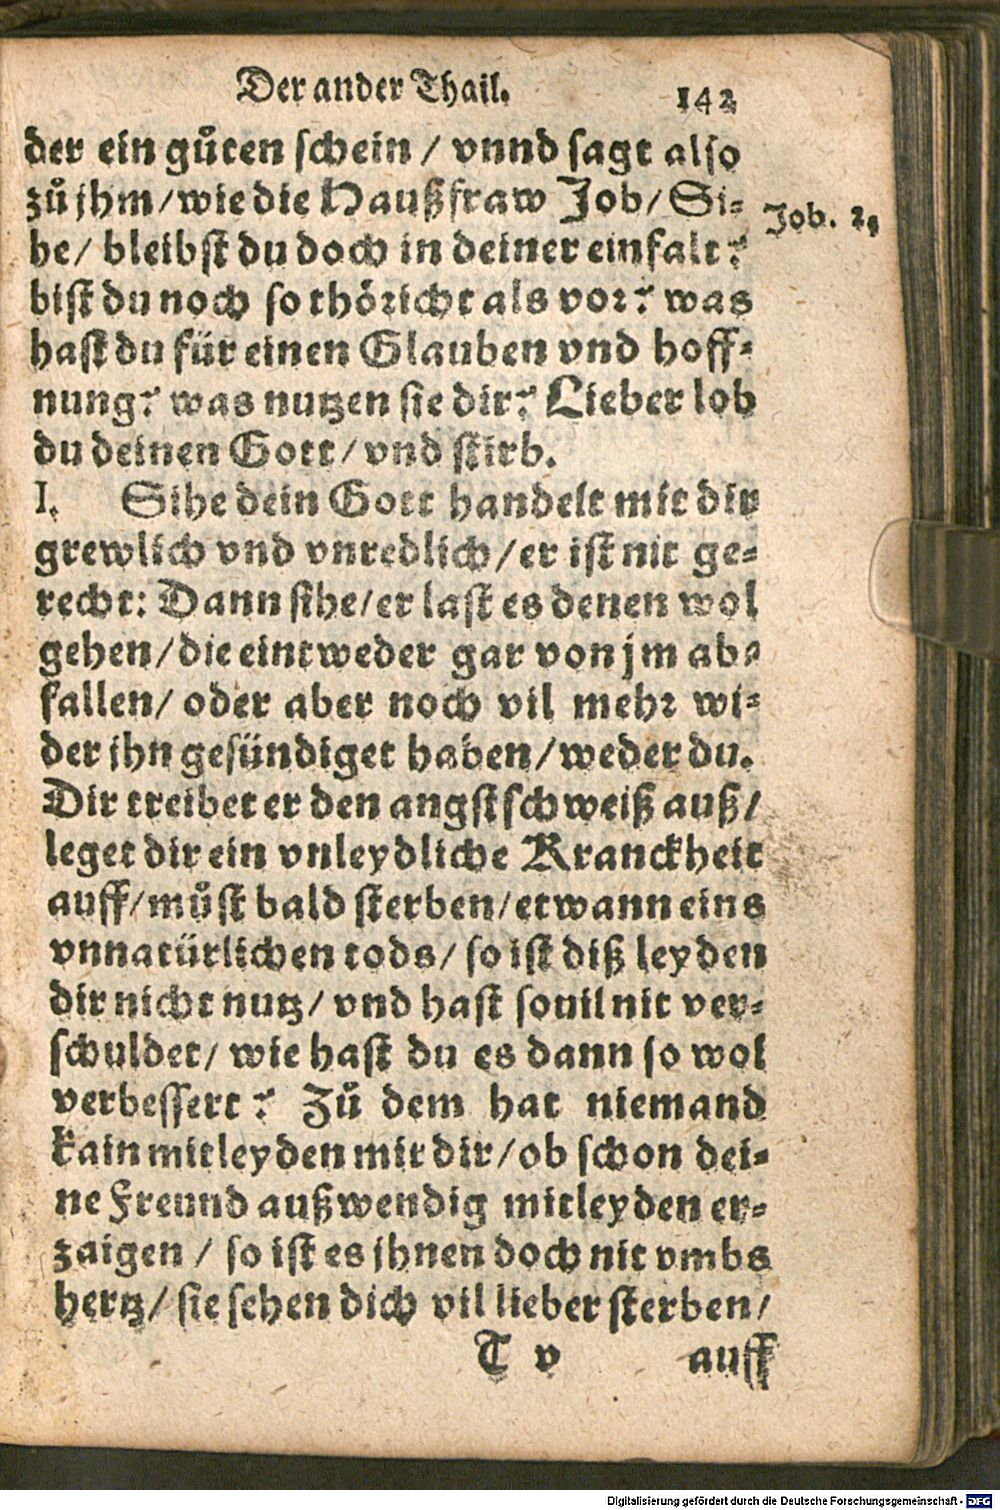 Der ander Thail. 142
der ein gůten schein / vnnd sagt also
zů jhm/wie die Haußfraw Job/ Si-
he/ bleibst du doch in deiner einfalt?
bist du noch so thöricht als vor? was
hast du für einen Glauben vnd hoff-
nung? was nutzen sie dir? Lieber lob
du deinen Gott/ vnd stirb.
Job. 2.
I. Sihe dein Gott handelt mit dir
grewlich vnd vnredlich/er ist nit ge-
recht: Dann sihe/er last es denen wol
gehen/die eintweder gar von jm ab-
fallen/ oder aber noch vil mehr wi-
der jhn gesündiget haben/weder du.
Dir treibet er den angstschweiß auß/
leget dir ein vnleydliche Kranckheit
auff/můst bald sterben/etwann eins
vnnatürlichen tods/ so ist diß leyden
dir nicht nutz/ vnd hast souil nit ver-
schuldet/ wie hast du es dann so wol
verbessert? Zů dem hat niemand
kain mitleyden mit dir/ob schon dei-
ne Freund außwendig mitleyden er-
zaigen / so ist es jhnen doch nit vmbs
hertz/ sie sehen dich vil lieber sterben/
T v auff
Digitalisierung gefördert durch die Deutsche Forschungsgemeinschaft - DFG